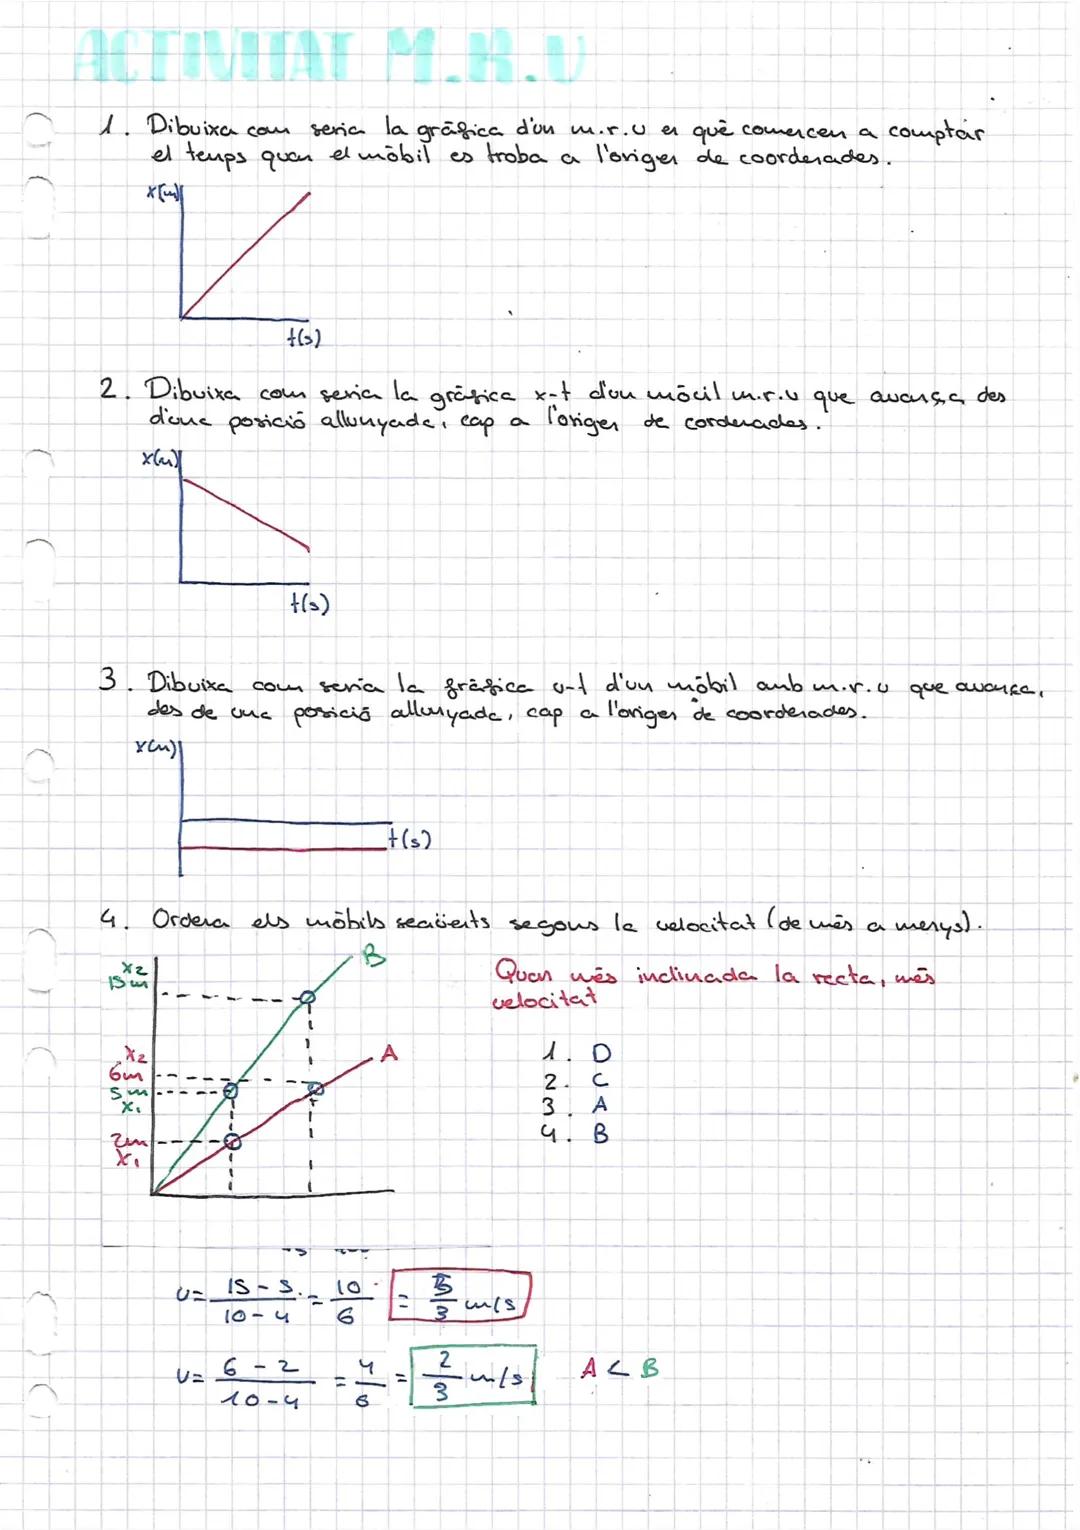 ACTIVITAT M.R.U
1. Dibuixa com seria la gràfica d'un m.r.u en què comencen a comptar
el temps quan el mòbil es troba a l'origen de coordenades.
x[m]
t(s)
2. Dibuixa com seria la gràfica x-t d'un mòcil m.r.u que avança des
d'una posició allunyada, cap a l'origen de cordenades.
x(m)
t(s)
3. Dibuixa com seria la gràfica v-t d'un mòbil amb m.r.u que avança,
des de una posició allunyada, cap a l'origen de coordenades.
x(m)
t(s)
4. Ordena els mòbils següents segons la velocitat (de més a menys).
B
x2
15m
Quan més inclinada la recta, més
velocitat
x2
A
6m
5m
x1
2m
x1
1. D
2. C
3. A
4. B
v= 15-5 / 10-4 = 10/6 = 5/3 m/s
v= 6-2 / 10-4 = 4/6 = 2/3 m/s A < B